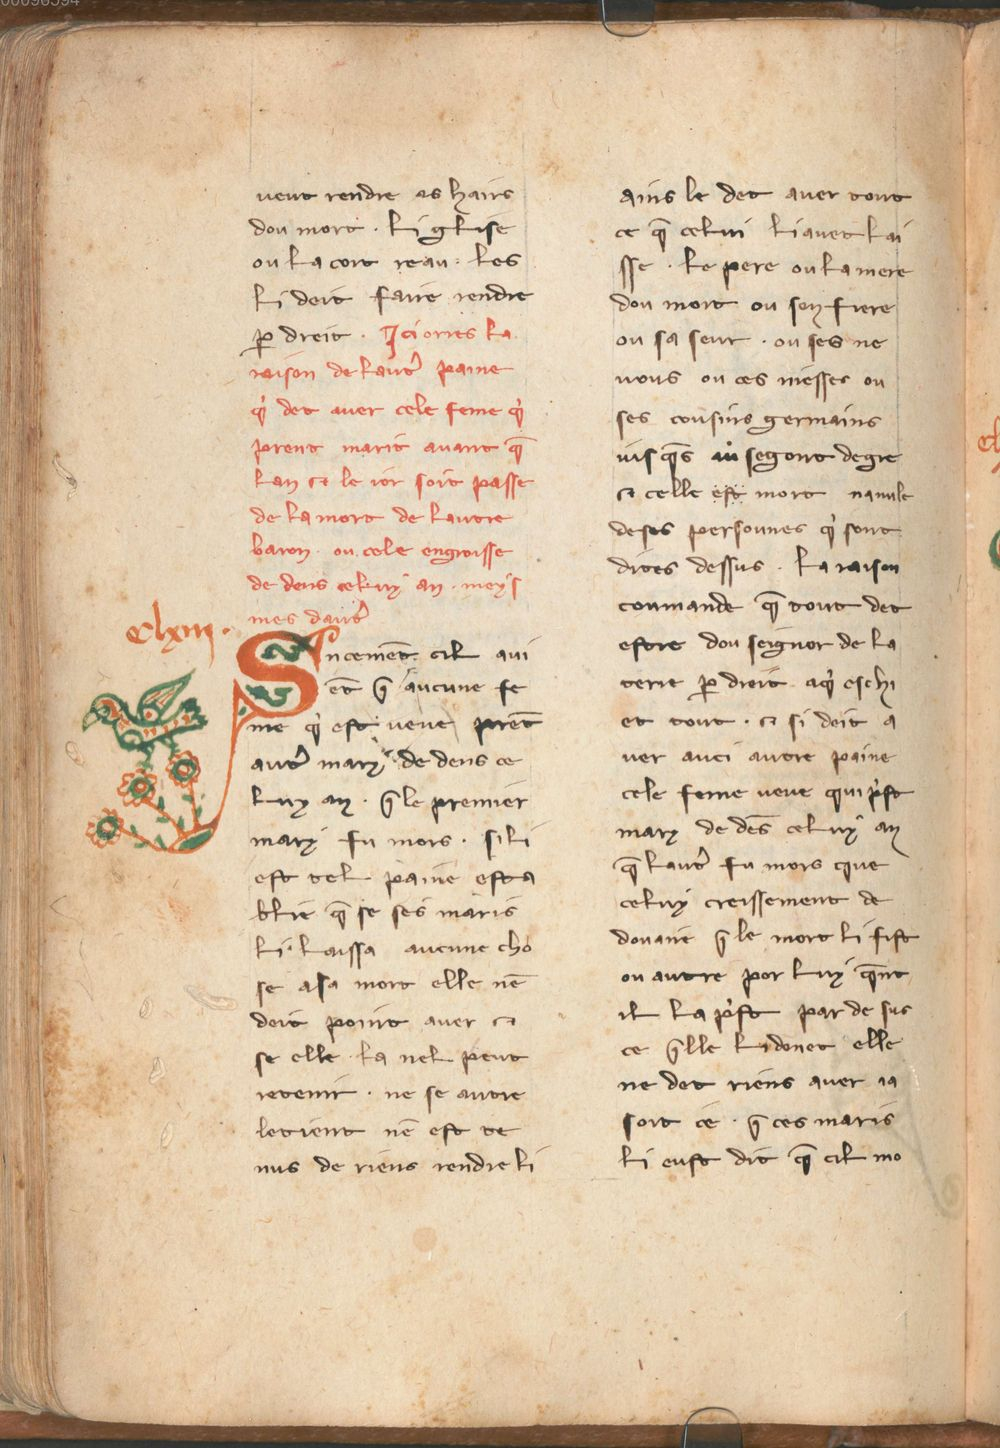 veut rendre as hairs
dou mort . Li gleise
ou la cort reau . les
li deit faire rendre
ꝑ dreit . Ici orres la
raison de laut᷑ paine
q̾ det aver cele feme q̾
prent marit avant q̄
lan ⁊ le ior soit passe
de la mort de lautre
baron . ou cele engroisse
de dens celuy an . meys
mes daut᷑
clxiii .
Sincemēt cil avi
ēt q̄ aucune fe
me q̾ est veve prēt
aut᷑ mary de dens ce
luy an . q̄ le premier
mary fu mors . si li
est tel paine esta
blie q̄ se ses maris
li laissa aucune cho
se a sa mort elle nē
deit point aver ⁊
se elle la nel peut
retenir . ne se autre
le tient nē est te
nus de riens rendre li
ains le det aver tout
ce q̄ celui li avet lai
sse . le pere ou la mere
dou mort ou son frere
ou sa seur . ou ses ne
vous ou ces niesses ou
ses cousins germains
iusq̄s au segont degre
⁊ celle est mort na nule
de ses persounes q̾ sont
dites dessus . la raison
coumande q̄ tout det
estre dou seignor de la
terre ꝑ dreit aq̾ eschi
et tout . ⁊ si deit a
ver auci autre paine
cele feme veve qui p̾st
mary de dēs celuy an
q̄ laut᷑ fu mors que
celuy creissement de
douaire q̄ le mort li fist
ou autre por luy q̄nt
il la p̾st par de sus
ce q̄lle li donet elle
ne det riens aver ia
soit ce . q̄ ces maris
li eust dit q̄ cil mo